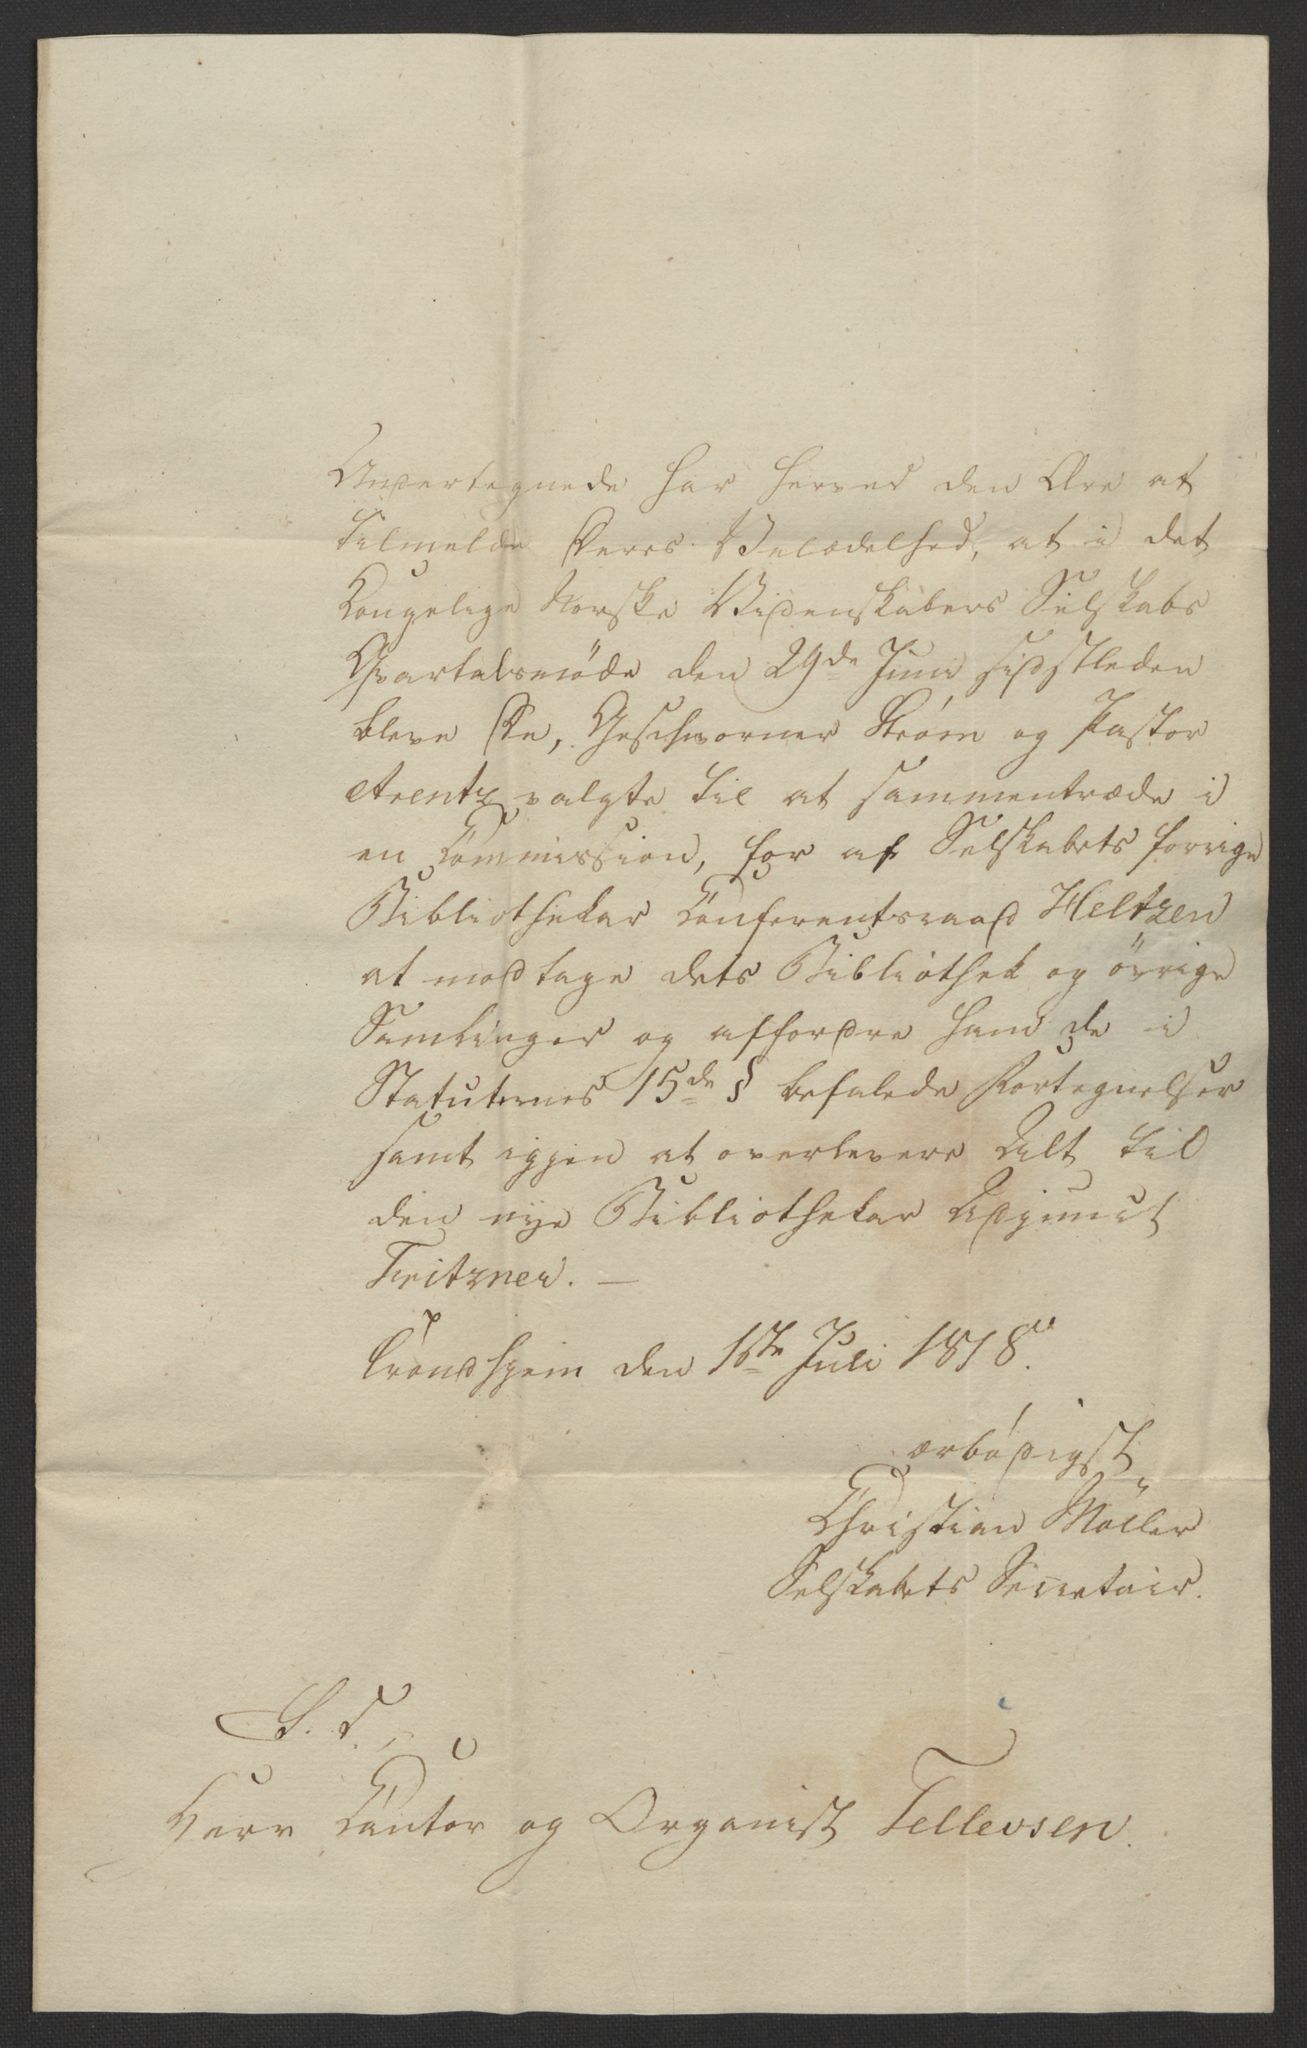 Undertegnede har herved den Ære at
tilmelde Deres Velædelhed, at i det
Kongelige Norske Videnskabers Selskabs
Qvartalsmöde den 29de Juni sidstleden
bleve De, Geschworner Ström og Pastor
Arentz valgte til at sammentræde i
en Commission, for af Selskabets forrige
Bibliothekar Conferentsraad Heltzen
at modtage dets Bibliothek og övrige
Samlinger og affordre ham de i
Statuternes 15de § befalede Fortegnelser
samt igjen at overlevere Alt til
den nye Bibliothekar Adjunct
Fritzner. —
Trondhjem den 1ste Juli 1818.
ærbödigst
Christian Möller
Selskabets Secretair.
S. T.
Herr Cantor og Organist Tellevsen.